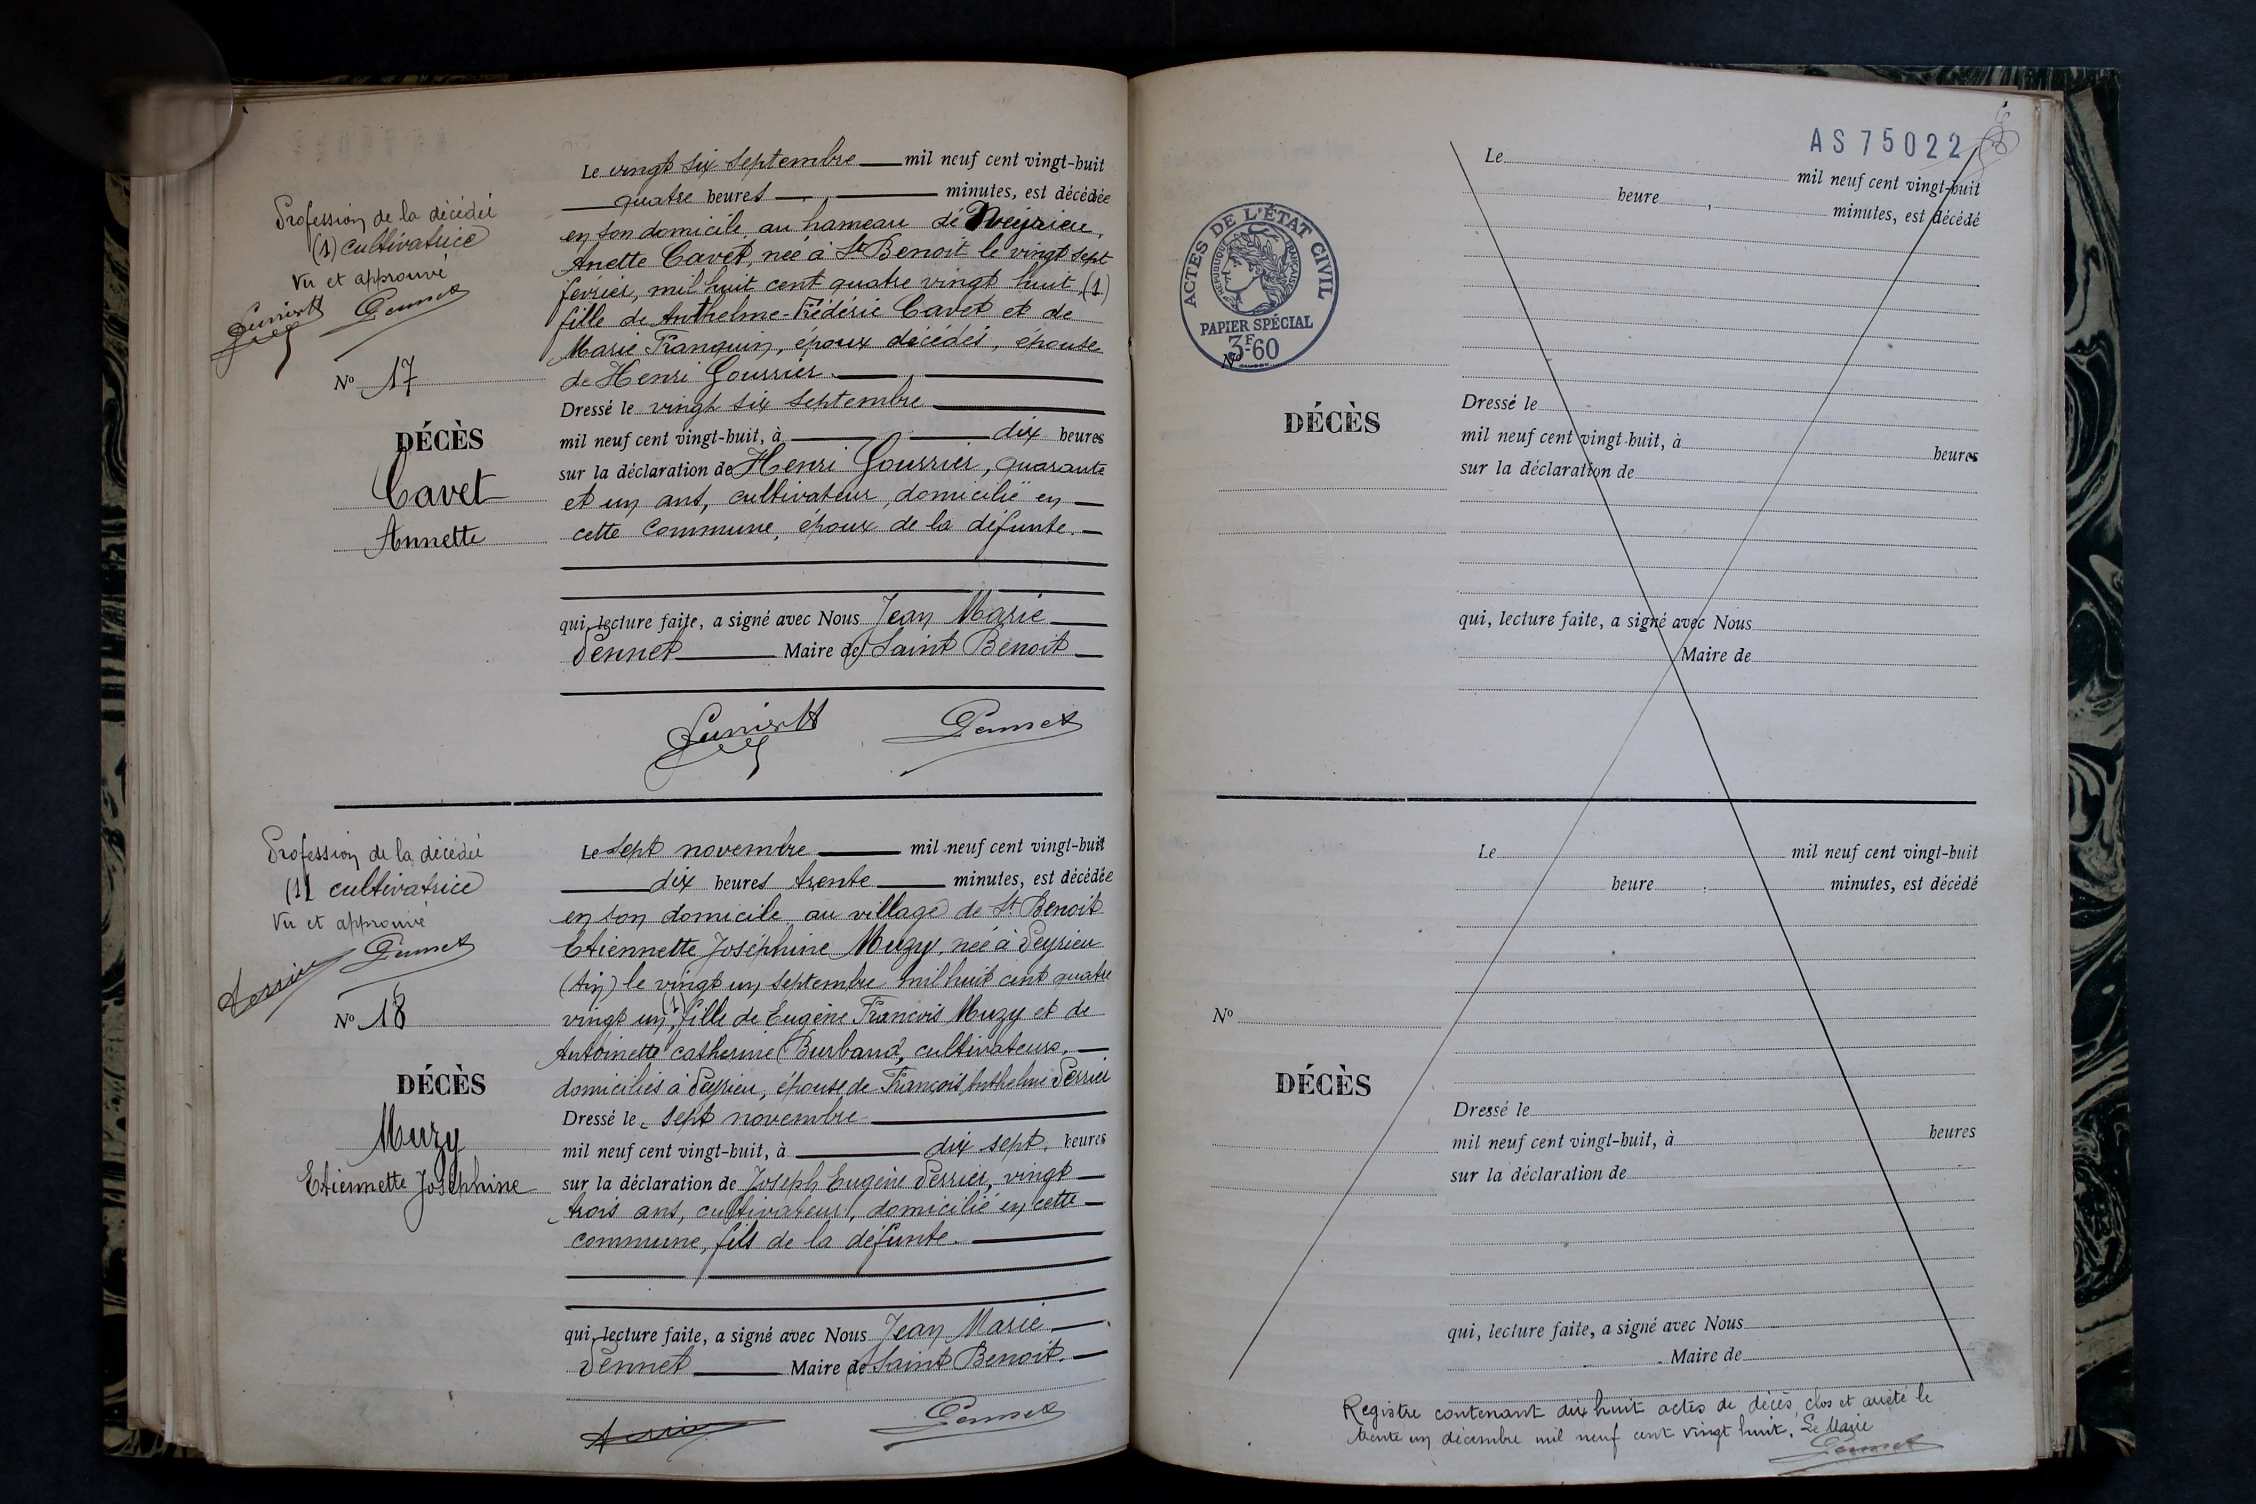 Le vingt six septembre mil neuf cent vingt-huit
quatre heures minutes, est décédée
en son domicile au hameau de
Anette Cavet, née à St Benoit le vingt sept
fevrier, mil huit cent quatre vingt huit, (1)
fille de Anthelme-Frédéric Cavet et de
Marie Franquin, époux décédés, épouse
de Henri Gourrier.
Dressé le vingt six septembre
mil neuf cent vingt-huit, à dix heures
sur la déclaration de Henri Gourrier, quarante
et un ans, cultivateur, domicilié en
cette commune, époux de la défunte.
qui, lecture faite, a signé avec Nous Jean Marie
Pennet Maire de Saint Benoit
Pennet
Profession de la décédée
(1) cultivatrice
Vu et approuvé
Pennet
No 17
DÉCÈS
Cavet
Annette
Le sept novembre mil neuf cent vingt-huit
dix heures trente minutes, est décédée
en son domicile au village de St Benoit
Etiennette Joséphine Muzy, née à Peyrieu
(Ain) le vingt un septembre mil huit cent quatre
vingt un, (1) fille de Eugène François Muzy et de
Antoinette catherine Burband, cultivateurs,
domiciliés à Peyrieu, épouse de François Anthelme Perrier
Dressé le sept novembre
mil neuf cent vingt-huit, à dix sept heures
sur la déclaration de Joseph Eugène Perrier, vingt
trois ans, cultivateur, domicilié en cette
commune, fils de la défunte.
qui, lecture faite, a signé avec Nous Jean Marie
Pennet Maire de Saint Benoit.
Perrier Pennet
Profession de la décédée
(1) cultivatrice
Vu et approuvé
Perrier Pennet
No 18
DÉCÈS
Muzy
Etiennette Joséphine
AS 75022
ACTES DE L'ÉTAT CIVIL
RÉPUBLIQUE FRANÇAISE
PAPIER SPÉCIAL
3F60
Le mil neuf cent vingt-huit
heure minutes, est décédé
No
DÉCÈS
Dressé le
mil neuf cent vingt-huit, à heures
sur la déclaration de
qui, lecture faite, a signé avec Nous
Maire de
Le mil neuf cent vingt-huit
heure minutes, est décédé
No
DÉCÈS
Dressé le
mil neuf cent vingt-huit, à heures
sur la déclaration de
qui, lecture faite, a signé avec Nous
Maire de
Registre contenant dix huit actes de décès, clos et arrêté le
trente un décembre mil neuf cent vingt huit. Le Maire
Pennet